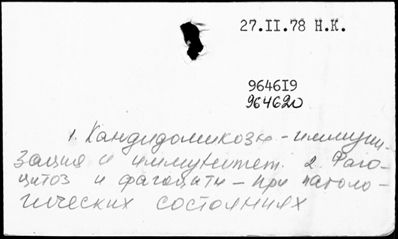 27.II.78 Н.К.
9646I9
964620
1. Кандидомикозы - иммуни-
зация и иммунитет. 2. Фаго-
цитоз и фагоциты - при патоло-
гических состояниях